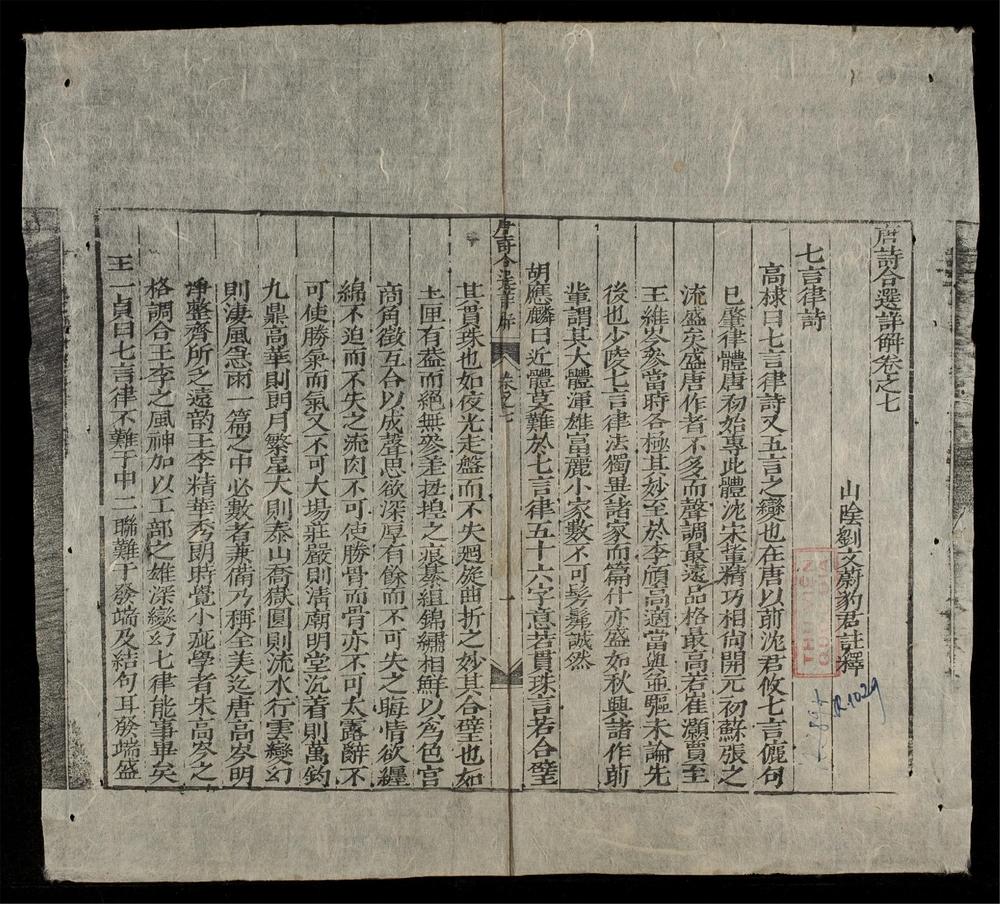 唐詩合選詳解卷之七
山陰劉文蔚豹君註釋
七言律詩
高棅曰七言律詩又五言之變也在唐以前沈君攸七言儷句
已肇律體唐初始專此體沈宋輩精巧相尚開元初蘇張之
流盛矣盛唐作者不多而聲調最遠品格最高若崔灝賈至
王維岑參當時各極其妙至於李頎高適當與並驅未論先
後也少陵七言律法獨異諸家而篇什亦盛如秋興諸作前
輩謂其大體渾雄富麗小家數不可髣髴誠然
胡應麟曰近體莫難於七言律五十六字意若貫珠言若合璧
唐詩合選詳解
卷之七
一
其貫珠也如夜光走盤而不失廻旋曲折之妙其合璧也如
玉匣有蓋而絕無參差扭捏之痕綦組錦繡相鮮以為色宮
商角徵互合以成聲思欲深厚有餘而不可失之晦情欲纏
綿不迫而不失之流肉不可使勝骨而骨亦不可太露辭不
可使勝氣而氣又不可大場莊嚴則清廟明堂沉着則萬鈞
九鼎高華則朗月繁星大則泰山喬嶽圓則流水行雲變幻
則淒風急雨一篇之中必數者兼備乃稱全美迄唐高岑明
淨整齊所之遠韵王李精華秀朗時覺小疵學者朱高岑之
格調合王李之風神加以工部之雄深變幻七律能事畢矣
王一貞曰七言律不難于中二聯難于發端及結句耳發端盛
R1029